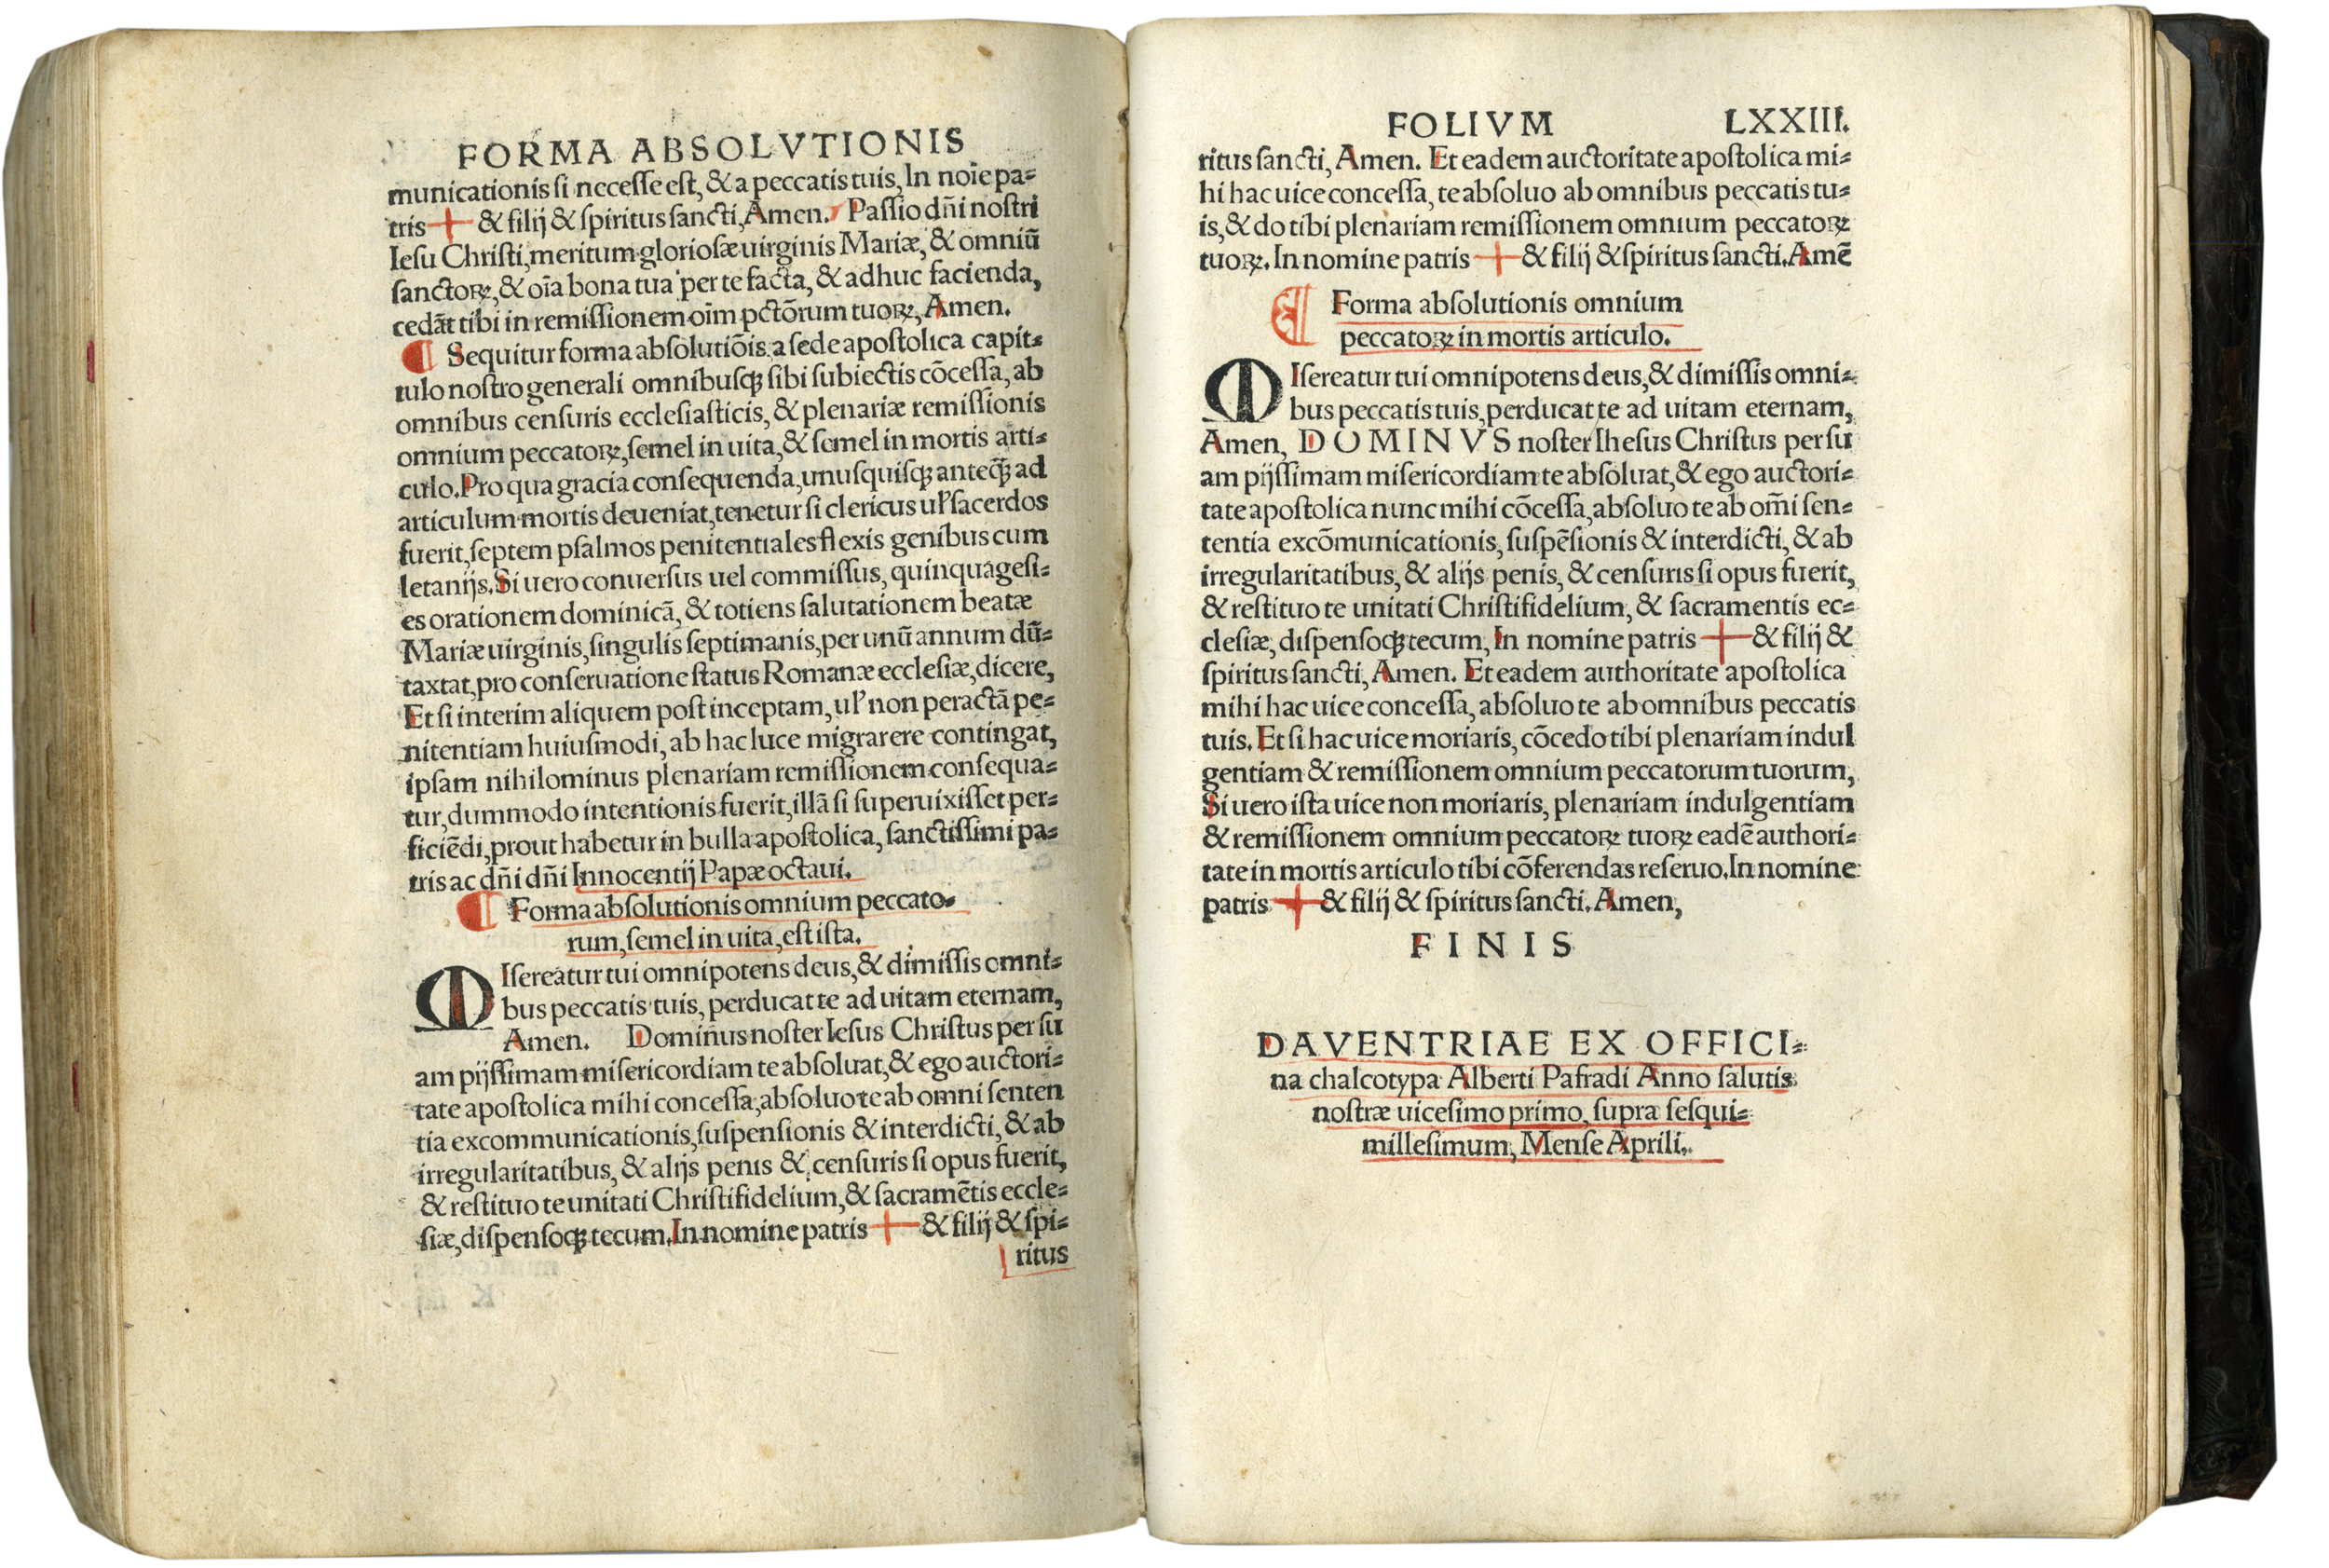 FORMA ABSOLVTIONIS
municationis si necesse est, & a peccatis tuis, In noīe pa⸗
tris + & filij & spiritus sancti, Amen. Passio dn̄i nostri
Iesu Christi, meritum gloriosæ uirginis Mariæ, & omniū
sanctoꝝ, & oīa bona tua per te facta, & adhuc facienda,
cedāt tibi in remissionem oīm pctōrum tuoꝝ, Amen.
¶ Sequitur forma absolutiōis a sede apostolica capit⸗
tulo nostro generali omnibusqꝫ sibi subiectis cōcessa, ab
omnibus censuris ecclesiasticis, & plenariæ remissionis
omnium peccatoꝝ, semel in uita, & semel in mortis arti⸗
culo. Pro qua gracia consequenda, unusquisqꝫ anteqꝫ̄ ad
articulum mortis deueniat, tenetur si clericus uł sacerdos
fuerit, septem psalmos penitentiales flexis genibus cum
letanijs. Si uero conuersus uel commissus, quinquagesi⸗
es orationem dominicā, & totiens salutationem beatæ
Mariæ uirginis, singulis septimanis, per unū annum dū⸗
taxtat, pro conseruatione status Romanæ ecclesiæ, dicere,
Et si interim aliquem post inceptam, uł non peractā pe⸗
nitentiam huiusmodi, ab hac luce migrarere contingat,
ipsam nihilominus plenariam remissionem consequa⸗
tur, dummodo intentionis fuerit, illā si superuixisset per⸗
ficiēdi, prout habetur in bulla apostolica, sanctissimi pa⸗
tris ac dn̄i dn̄i Innocentij Papæ octaui.
¶ Forma absolutionis omnium peccato⸗
rum, semel in uita, est ista.
MIsereatur tui omnipotens deus, & dimissis omni⸗
bus peccatis tuis, perducat te ad uitam eternam,
Amen. Dominus noster Iesus Christus per su
am pijssimam misericordiam te absoluat, & ego auctori⸗
tate apostolica mihi concessa, absoluo te ab omni senten
tia excommunicationis, suspensionis & interdicti, & ab
irregularitatibus, & alijs penis & censuris si opus fuerit,
& restituo te unitati Christifidelium, & sacramētis eccle⸗
siæ, dispensoqꝫ tecum. In nomine patris + & filij & spi⸗
ritus
FOLIVM LXXIII.
ritus sancti, Amen. Et eadem auctoritate apostolica mi⸗
hi hac uice concessa, te absoluo ab omnibus peccatis tu⸗
is, & do tibi plenariam remissionem omnium peccatoꝝ
tuoꝝ. In nomine patris + & filij & spiritus sancti. Amē
¶ Forma absolutionis omnium
peccatoꝝ in mortis articulo.
MIsereatur tui omnipotens deus, & dimissis omni⸗
bus peccatis tuis, perducat te ad uitam eternam,
Amen, DOMINVS noster Ihesus Christus per su
am pijssimam misericordiam te absoluat, & ego auctori⸗
tate apostolica nunc mihi cōcessa, absoluo te ab om̄i sen⸗
tentia excōmunicationis, suspēsionis & interdicti, & ab
irregularitatibus, & alijs penis, & censuris si opus fuerit,
& restituo te unitati Christifidelium, & sacramentis ec⸗
clesiæ, dispensoqꝫ tecum, In nomine patris + & filij &
spiritus sancti, Amen. Et eadem authoritate apostolica
mihi hac uice concessa, absoluo te ab omnibus peccatis
tuis. Et si hac uice moriaris, cōcedo tibi plenariam indul
gentiam & remissionem omnium peccatorum tuorum,
Si uero ista uice non moriaris, plenariam indulgentiam
& remissionem omnium peccatoꝝ tuoꝝ eadē authori⸗
tate in mortis articulo tibi cōferendas reseruo. In nomine
patris + & filij & spiritus sancti. Amen,
FINIS
DAVENTRIAE EX OFFICI⸗
na chalcotypa Alberti Pafradi Anno salutis
nostræ uicesimo primo, supra sesqui⸗
millesimum, Mense Aprili.